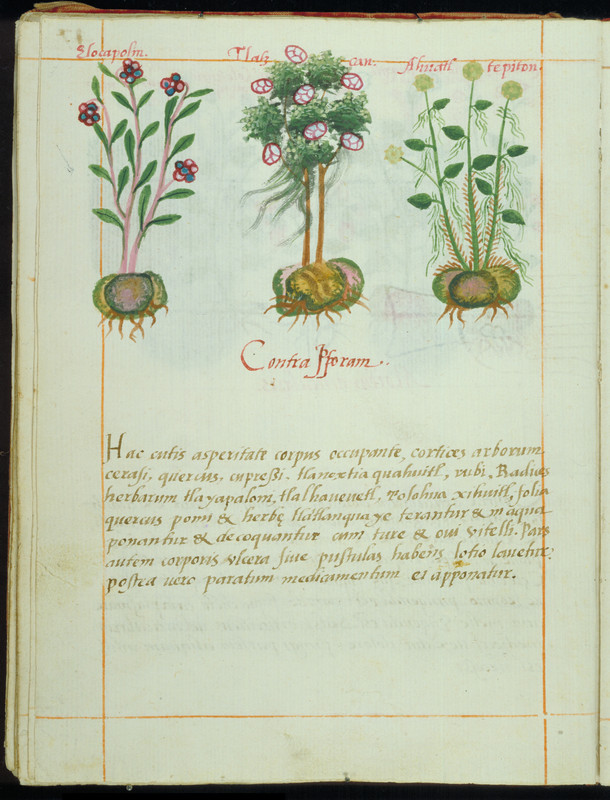 Tlocapolin. Tlatz can: Ahuatl tepiton.
Contra Psoram.
Hac cutis asperitate corpus occupante, cortices arborum
cerasi, quercus, cupressi. tlanextia quahuitl, rubi. Radices
herbarum tlayapalom, tlalhauevetl, tolohua xihuitl, folia
quercus pomi & herbe tlatlanquaye terantur & in aqua
ponantur & decoquantur cum ture & oui vitelli. Pars
autem corporis vlcera siue pustulas habens lotio lauetur:
postea vero paratum medicamentum ei apponatur.